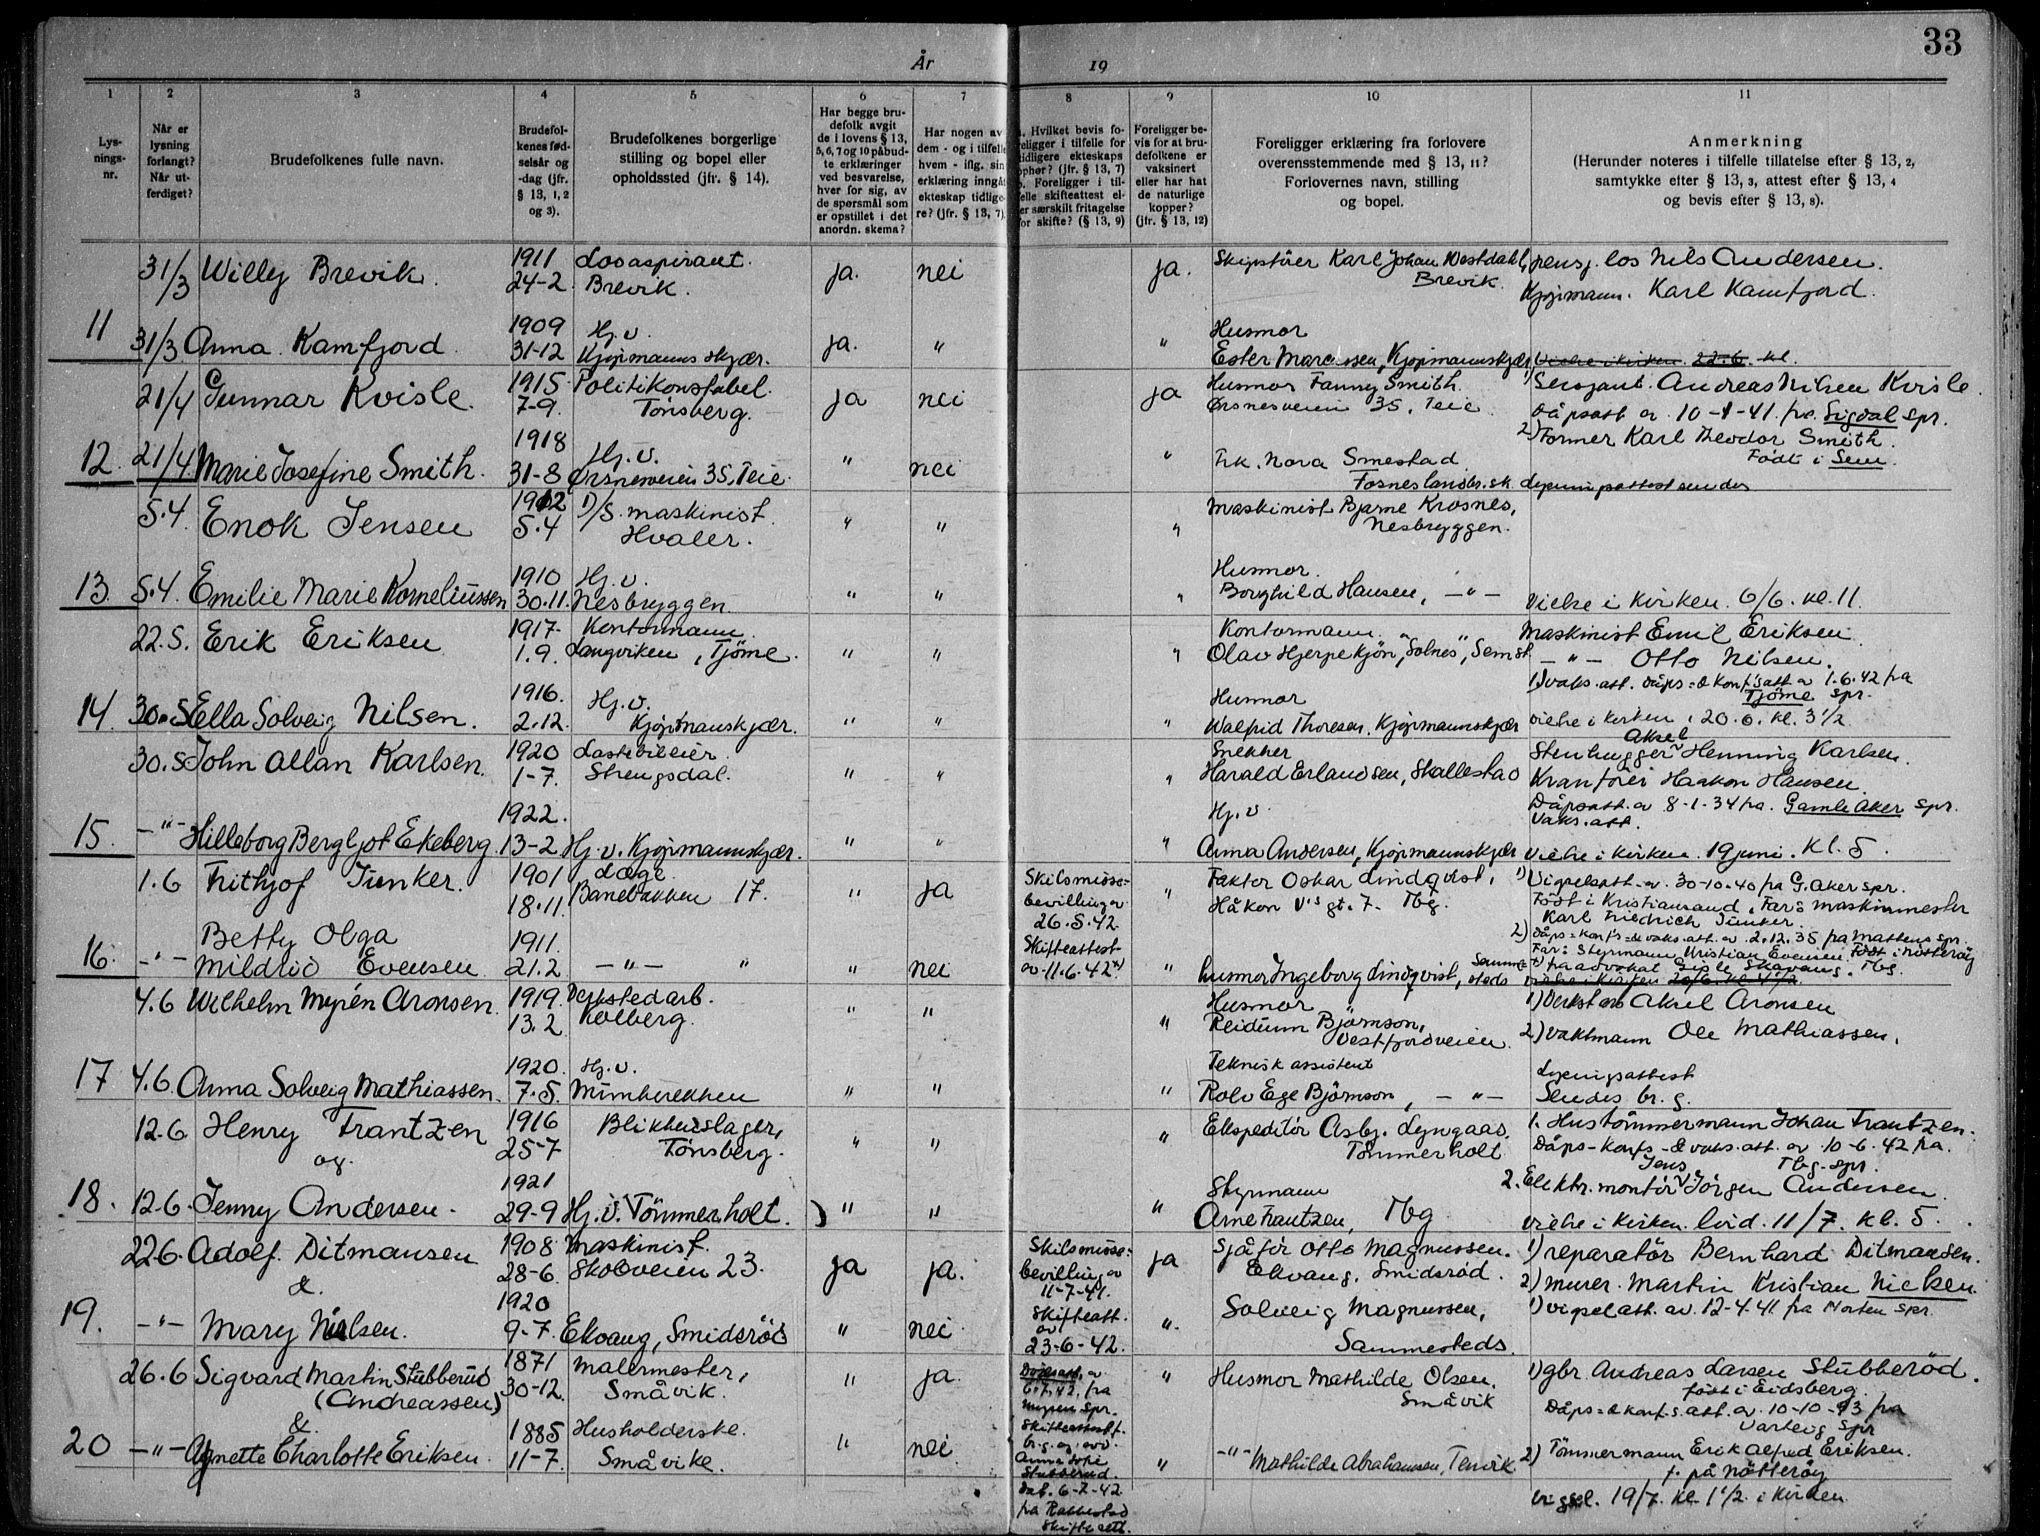 33
År 19
1 2 3 4 5 6 7 8 9 10 11
Lys-
nings-
nr.
Når er
lysning
forlangt?
Når ut-
ferdiget?
Brudefolkenes fulle navn.
Brudefol-
kenes fød-
selsår og
-dag (jfr.
§ 13, 1, 2
og 3).
Brudefolkenes borgerlige
stilling og bopel eller
opholdssted (jfr. § 14).
Har begge bru-
defolk avgit
de i lovens § 13,
5, 6, 7 og 10 påbud-
te erklæringer
ved besvarelse,
hver for sig, av
de spørsmål som
er opstillet i det
anordn. skema?
Har nogen av
dem - og i tilfelle
hvem - iflg. sin
erklæring inngåt
ekteskap tidlige-
re? (jfr. § 13, 7).
. Hvilket bevis fo-
religger i tilfelle for
tidligere ekteskaps
ophør? (jfr. § 13, 7)
. Foreligger i til-
felle skifteattest el-
er særskilt fritagelse
for skifte? (§ 13, 9)
Foreligger be-
vis for at bru-
defolkene er
vaksinert
eller har hat
de naturlige
kopper?
(jfr. § 13, 12)
Foreligger erklæring fra forlovere
overensstemmende med § 13, 11?
Forlovernes navn, stilling
og bopel.
Anmerkning
(Herunder noteres i tilfelle tillatelse efter § 13, 2,
samtykke efter § 13, 3, attest efter § 13, 4
og bevis efter § 13, 8).
31/3 Willy Brevik. 1911 24-2. Losaspirant. Brevik. ja. nei ja. Skipsfører Karl Johan Westdahl, Brevik. pens. los Nils Andersen.
Kjøpmann. Karl Kamfjord.
11 31/3 Anna Kamfjord 1909 31-12 Hj.v. Kjøpmannskjær. ja. " " Husmor
Ester Marcussen, Kjøpmannskjær, Vielse i kirken 22-6. kl.
21/4 Gunnar Kvisle. 1915 7-9. Politikonstabel. Tønsberg. ja nei ja Husmor Fanny Smith.
Ørsnesveien 35, Teie. 1) Sersjant Andreas Nilsen Kvisle.
Dåpsatt. av 10-1-41 fra Sigdal spr.
2) Former Karl Theodor Smith.
Født i Sem.
12. 21/4. Marie Josefine Smith. 1918 31-8 Hj.v. Ørsnesveien 35, Teie. " nei " Frk. Nora Smestad
Fosnes landbr.sk. Lysningsattest sendes
5.4 Enok Jensen 1912 5.4 D/S. maskinist. Hvaler. " " " Maskinist Bjarne Krosnes,
Nesbryggen.
13. 5.4. Emilie Marie Korneliussen 1910 30.11. Hj.v. Nesbryggen. " " " Husmor.
Borghild Hansen, -"- Vielse i kirken. 6/6. kl. 11.
22.5. Erik Eriksen 1917. 1.9. Kontormann Langviken, Tjøme. " " " Kontormann.
Olav Hjerpekjøn, "Solnes", Sem st. Maskinist Emil Eriksen.
-"- Otto Nilsen.
1) vaks.att. dåps- & konf's att. av 1.6.42 fra
Tjøme spr.
14 30.5 Ella Solveig Nilsen. 1916. 2.12. Hj.v. Kjøpmannskjær. " " " Husmor
Walfrid Thoresen, Kjøpmannskjær vielse i kirken, 20.6. kl. 3½
30.5 John Allan Karlsen. 1920 1-7. Lastebileier. Strengsdal. " " " Snekker
Harald Erlandsen, Skallestad Aksel
Stenhugger Henning Karlsen.
Kranfører Haakon Hansen.
Dåpsatt. av 8-1-34 fra. Gamle Aker spr.
Vaks.att.
15. -"- Hilleborg Bergljot Ekeberg. 1922. 13-2. Hj.v. Kjøpmannskjær. " " " Hj.v
Anna Andersen, Kjøpmannskjær Vielse i kirken. 19 juni. Kl. 5.
1.6 Frithjof Junker. 1901 18.11. Læge. Banebakken 17. " ja Skilsmisse-
bevilling av
26.5.42. " Faktor Oskar Lindqvist,
Håkon V's gt. 7. Tbg. 1) Vigselsatt. av. 30-10-40 fra G. Aker spr.
Født i Kristiansand. Far: maskinmester
Karl Friedrich Junker.
16. -"- Betty Olga
Mildrid Evensen 1911. 21.2. -"- " " nei Skifteattest
av 11.6.42 *) " husmor Ingeborg Lindqvist, sammesteds 2) Dåps- konf's- & vaks.att. av 2.12.35 fra Mattens spr.
Far: Styrmann Kristian Evensen. Født i Nøtterøy
*) fra advokat Gisle Skavang. Tbg.
4.6 Wilhelm Myrén Aronsen. 1919. 13.2 Verkstedarb. Kolberg. " " " Husmor
Reidunn Bjørnson,
Vestfjordveien. 1) Verkst.arb Aksel Aronsen
2) vaktmann Ole Mathiassen.
17 4.6 Anna Solveig Mathiassen. 1920. 7.5. Hj.v. Munkerekken " " " Teknisk assistent
Rolv Ege Bjørnson, -"- Lysningsattest
Sendes br. g.
12.6 Henry Frantzen
og. 1916 25-7 Blikkenslager, Tønsberg. " " " Ekspeditør Asbj. Lyngaas.
Tømmerholt. 1. Hustømmermann Johan Frantzen.
Dåps- konfs- & vaks.att. av 10-6.42 fra
Tbg. spr.
18. 12.6. Jenny Andersen. 1921 29-9 Hj.v. Tømmerholt. " " " Styrmann
Arne Frantzen, Tbg 2. Elektr.montør Jens Jörgen Andersen.
vielse i kirken. lørd. 11/7. Kl. 5.
22.6. Adolf Ditmansen
&. 1908 28-6. Maskinist. Skolveien 23. ja ja. Skilsmisse-
bevilling av
11-7-41. ja. Sjåfør Otto Magnussen.
Ekvang, Smidsrød. 1) reparatør Bernhard Ditmansen.
2) murer. Martin Kristian Nielsen.
19. -"- Mary Nilsen. 1920 9-7. Ekvang, Smidsrød " nei Skifteatt.
av
23-6-42. " Solveig Magnussen,
Sammesteds. 1) vigselatt. av. 12-4.41 fra Horten spr.
26.6 Sigvard Martin Stubberud
(Andreassen)
&. 1871 30-12. Malermester, Småvik. " ja. Dødsatt. av
6.7.42, fra
Mysen spr.
Skifteattest f.
br.g. og avd.
Anna Sofie
Stubberud.
dat. 6-7-42.
fra Rakkestad
Skifterett. " Husmor Mathilde Olsen.
Småvik 1) gbr. Andreas Larsen Stubberød.
født i Eidsberg.
Dåps- & konf-s. att. av. 10-10-93 fra
Varteig spr
20 -"- Agnette Charlotte Eriksen. 1885 11-7. Husholderske. Småvike. " nei " -"- Mathilde Abrahamsen, Tenvik 2) Tømmermann Erik Alfred Eriksen.
f. på Nøtterøy
vigsel. 19/7. kl 1½. i kirken